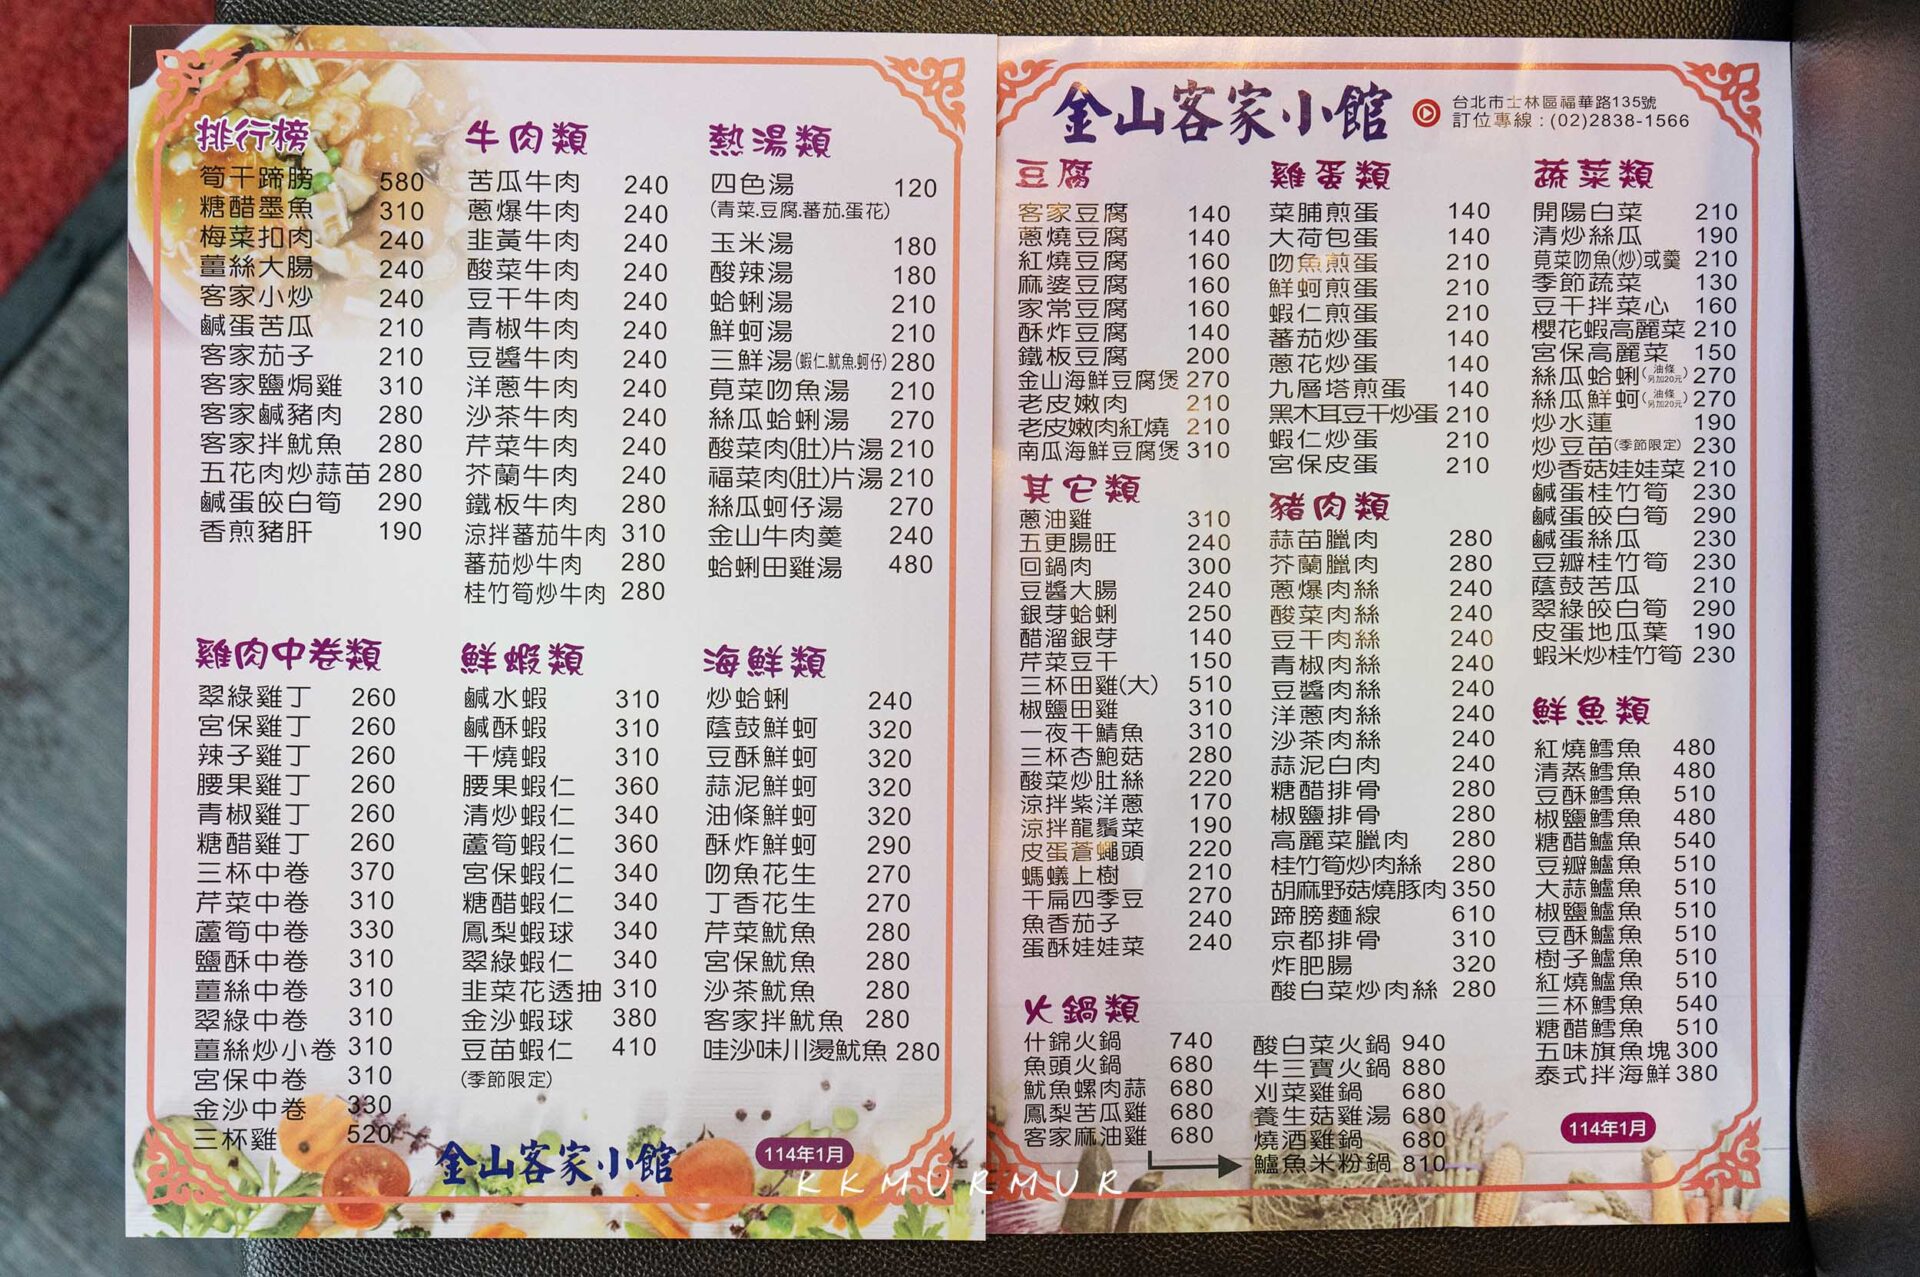 排行榜
筍干蹄膀 580
糖醋墨魚 310
梅菜扣肉 240
薑絲大腸 240
客家小炒 240
鹹蛋苦瓜 210
客家茄子 210
客家鹽焗雞 310
客家鹹豬肉 280
客家拌魷魚 280
五花肉炒蒜苗 280
鹹蛋皎白筍 290
香煎豬肝 190
牛肉類
苦瓜牛肉 240
蔥爆牛肉 240
韭黃牛肉 240
酸菜牛肉 240
豆干牛肉 240
青椒牛肉 240
豆醬牛肉 240
洋蔥牛肉 240
沙茶牛肉 240
芹菜牛肉 240
芥蘭牛肉 240
鐵板牛肉 280
涼拌蕃茄牛肉 310
蕃茄炒牛肉 280
桂竹筍炒牛肉 280
熱湯類
四色湯 120
(青菜.豆腐.蕃茄.蛋花)
玉米湯 180
酸辣湯 180
蛤蜊湯 210
鮮蚵湯 210
三鮮湯(蝦仁.魷魚.蚵仔) 280
莧菜吻魚湯 210
絲瓜蛤蜊湯 270
酸菜肉(肚)片湯 210
福菜肉(肚)片湯 210
絲瓜蚵仔湯 270
金山牛肉羹 240
蛤蜊田雞湯 480
雞肉中卷類
翠綠雞丁 260
宮保雞丁 260
辣子雞丁 260
腰果雞丁 260
青椒雞丁 260
糖醋雞丁 260
三杯中卷 370
芹菜中卷 310
蘆筍中卷 330
鹽酥中卷 310
薑絲中卷 310
翠綠中卷 310
薑絲炒小卷 310
宮保中卷 310
金沙中卷 330
三杯雞 520
鮮蝦類
鹹水蝦 310
鹹酥蝦 310
干燒蝦 310
腰果蝦仁 360
清炒蝦仁 340
蘆筍蝦仁 360
宮保蝦仁 340
糖醋蝦仁 340
鳳梨蝦球 340
翠綠蝦仁 340
韭菜花透抽 310
金沙蝦球 380
豆苗蝦仁 410
(季節限定)
海鮮類
炒蛤蜊 240
蔭鼓鮮蚵 320
豆酥鮮蚵 320
蒜泥鮮蚵 320
油條鮮蚵 320
酥炸鮮蚵 290
吻魚花生 270
丁香花生 270
芹菜魷魚 280
宮保魷魚 280
沙茶魷魚 280
客家拌魷魚 280
哇沙味川燙魷魚 280
金山客家小館
114年1月
金山客家小館
台北市士林區福華路135號
訂位專線:(02)2838-1566
豆腐
客家豆腐 140
蔥燒豆腐 140
紅燒豆腐 160
麻婆豆腐 160
家常豆腐 160
酥炸豆腐 140
鐵板豆腐 200
金山海鮮豆腐煲 270
老皮嫩肉 210
老皮嫩肉紅燒 210
南瓜海鮮豆腐煲 310
其它類
蔥油雞 310
五更腸旺 240
回鍋肉 300
豆醬大腸 240
銀芽蛤蜊 250
醋溜銀芽 140
芹菜豆干 150
三杯田雞(大) 510
椒鹽田雞 310
一夜干鯖魚 310
三杯杏鮑菇 280
酸菜炒肚絲 220
涼拌紫洋蔥 170
涼拌龍鬚菜 190
皮蛋蒼蠅頭 220
螞蟻上樹 210
干扁四季豆 270
魚香茄子 240
蛋酥娃娃菜 240
雞蛋類
菜脯煎蛋 140
大荷包蛋 140
吻魚煎蛋 210
鮮蚵煎蛋 210
蝦仁煎蛋 210
蕃茄炒蛋 140
蔥花炒蛋 140
九層塔煎蛋 140
黑木耳豆干炒蛋 210
蝦仁炒蛋 210
宮保皮蛋 210
豬肉類
蒜苗臘肉 280
芥蘭臘肉 280
蔥爆肉絲 240
酸菜肉絲 240
豆干肉絲 240
青椒肉絲 240
豆醬肉絲 240
洋蔥肉絲 240
沙茶肉絲 240
蒜泥白肉 240
糖醋排骨 280
椒鹽排骨 280
高麗菜臘肉 280
桂竹筍炒肉絲 280
胡麻野菇燒豚肉 350
蹄膀麵線 610
京都排骨 310
炸肥腸 320
酸白菜炒肉絲 280
蔬菜類
開陽白菜 210
清炒絲瓜 190
莧菜吻魚(炒)或羹 210
季節蔬菜 130
豆干拌菜心 160
櫻花蝦高麗菜 210
宮保高麗菜 150
絲瓜蛤蜊(油條另加20元) 270
絲瓜鮮蚵(油條另加20元) 270
炒水蓮 190
炒豆苗(季節限定) 230
炒香菇娃娃菜 210
鹹蛋桂竹筍 230
鹹蛋皎白筍 290
鹹蛋絲瓜 230
豆瓣桂竹筍 230
蔭鼓苦瓜 210
翠綠皎白筍 290
皮蛋地瓜葉 190
蝦米炒桂竹筍 230
鮮魚類
紅燒鱈魚 480
清蒸鱈魚 480
豆酥鱈魚 510
椒鹽鱈魚 480
糖醋鱸魚 540
豆瓣鱸魚 510
大蒜鱸魚 510
椒鹽鱸魚 510
豆酥鱸魚 510
樹子鱸魚 510
紅燒鱸魚 510
三杯鱈魚 540
糖醋鱈魚 510
五味旗魚塊 300
泰式拌海鮮 380
火鍋類
什錦火鍋 740
魚頭火鍋 680
魷魚螺肉蒜 680
鳳梨苦瓜雞 680
客家麻油雞 680
酸白菜火鍋 940
牛三寶火鍋 880
刈菜雞鍋 680
養生菇雞湯 680
燒酒雞鍋 680
鱸魚米粉鍋 810
114年1月
KKMURMUR